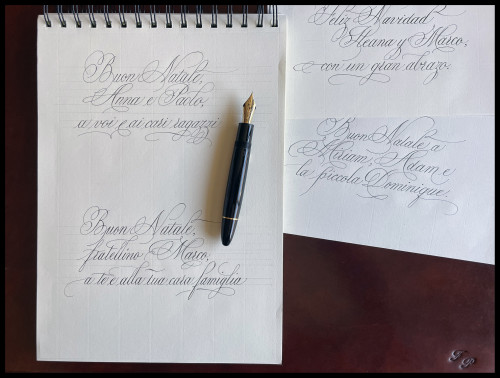 Buon Natale,
Anna e Paolo,
a voi e ai cari ragazzi
Buon Natale,
fratellino Marco,
a te e alla tua cara famiglia
Feliz Navidad
Ileana y Marco,
con un gran abrazo.
Buon Natale a
Miriam, Adam e
la piccola Dominique